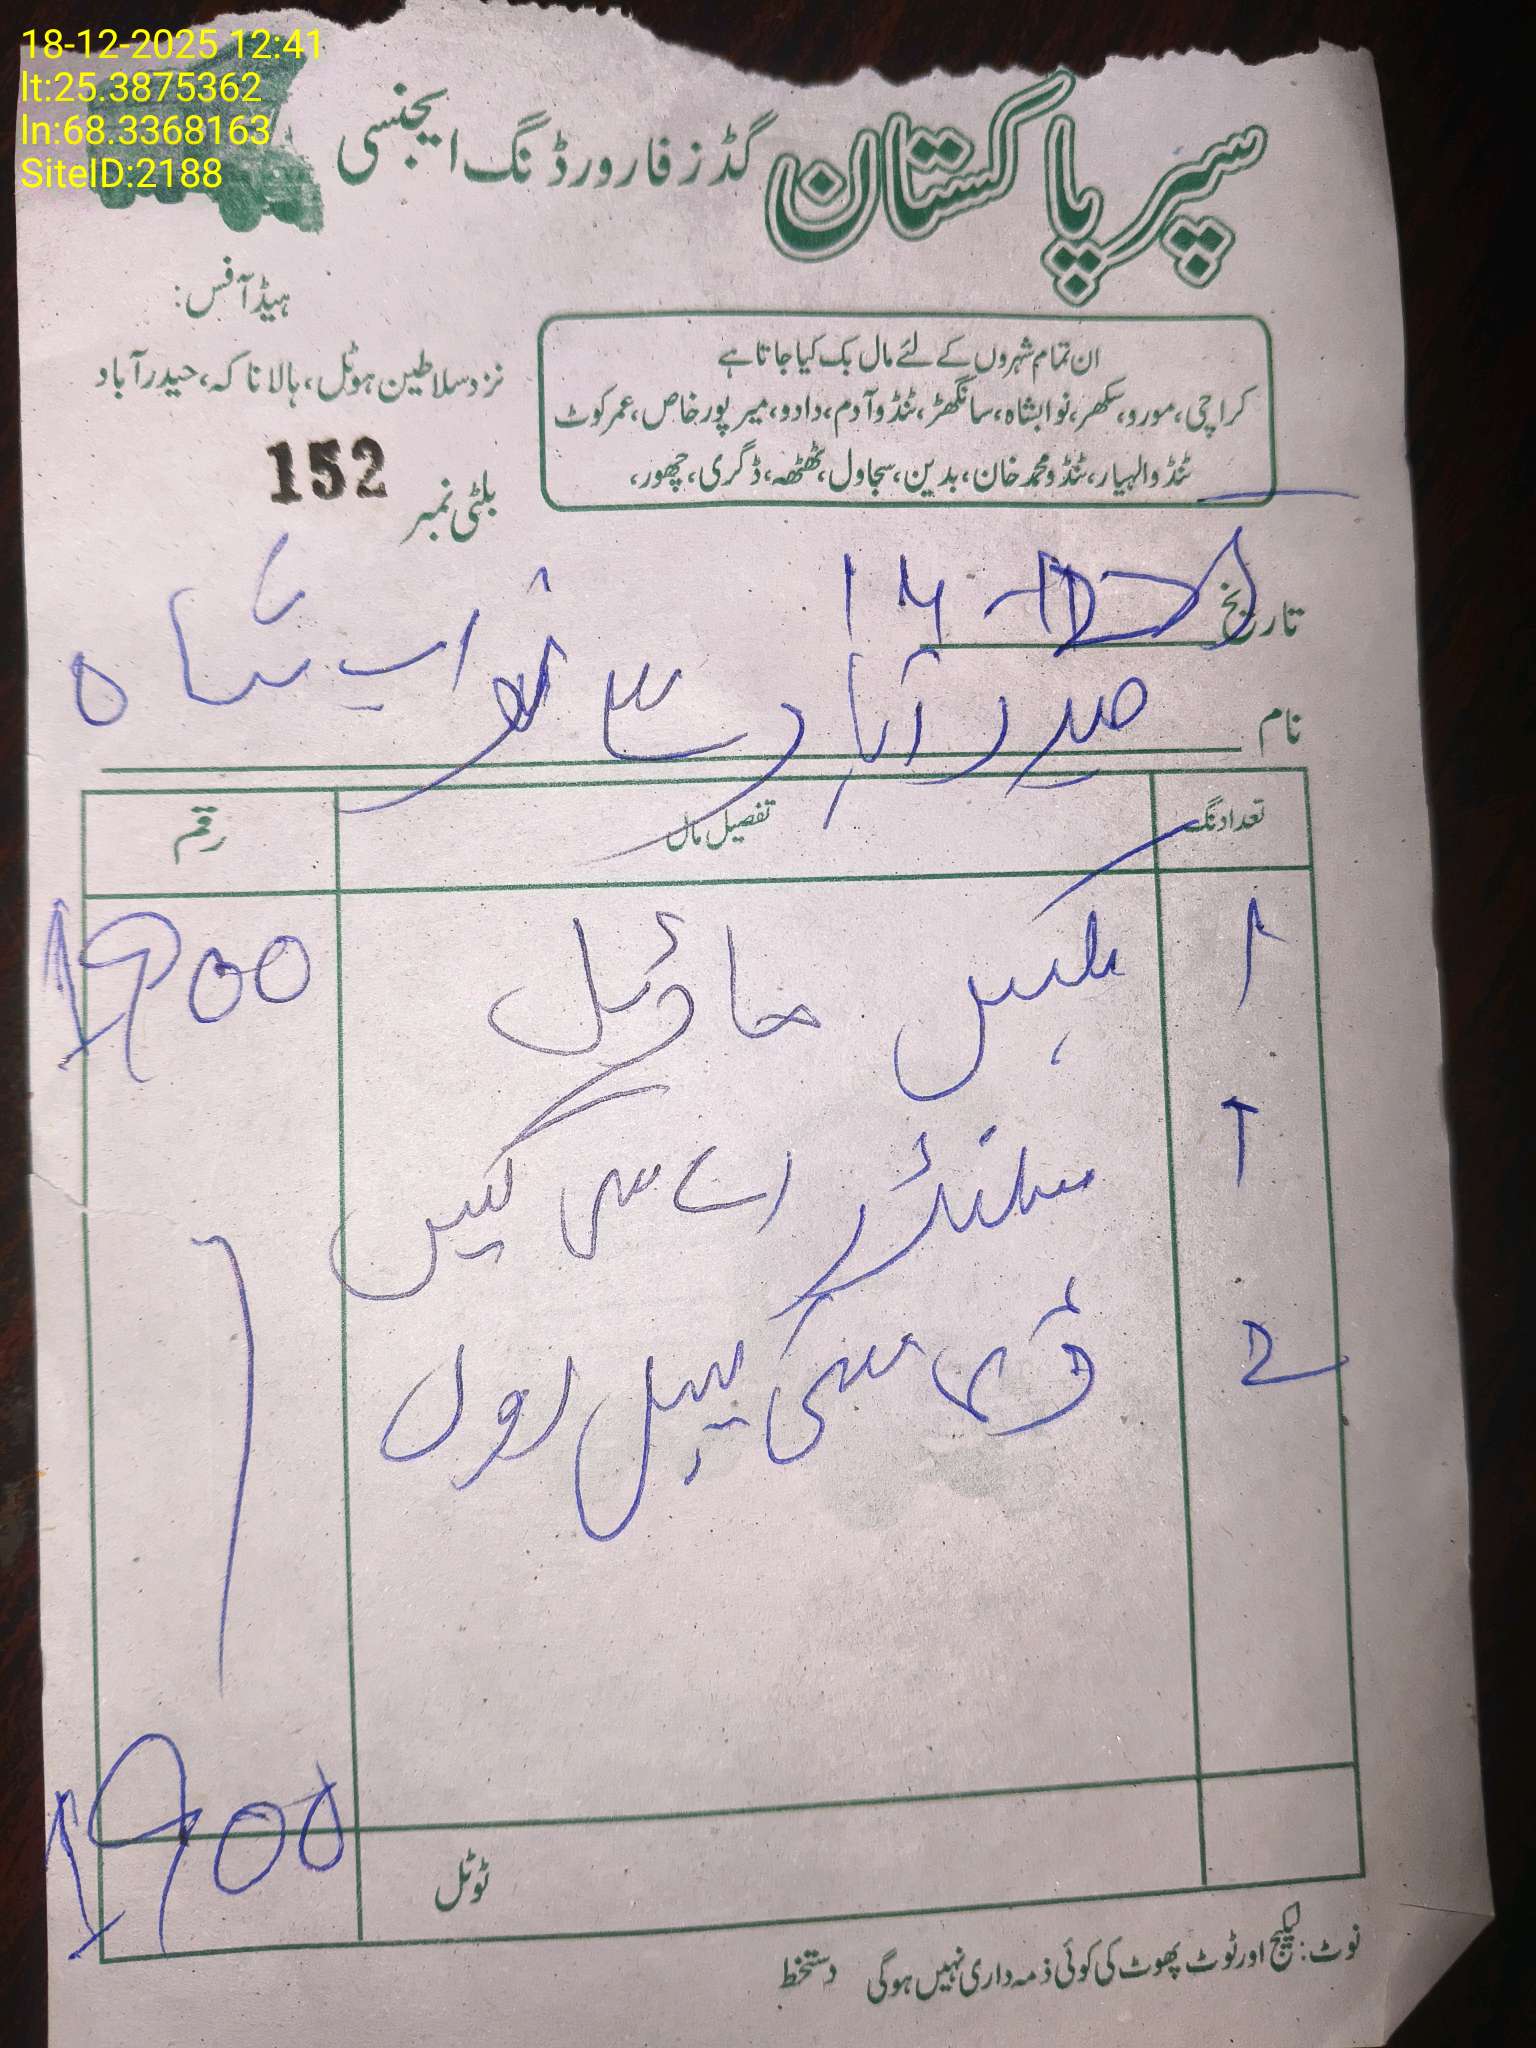 18-12-2025 12:41
lt:25.3875362
ln:68.3368163
SiteID:2188
سپر پاکستان گڈز فارورڈنگ ایجنسی
ہیڈ آفس:
نزد سلاطین ہوٹل، ہالا ناکہ، حیدرآباد
ان تمام شہروں کے لئے مال بک کیا جاتا ہے
کراچی، مورو، سکھر، نوابشاہ، سانگھڑ، ٹنڈو آدم، دادو، میرپور خاص، عمرکوٹ
ٹنڈو الہیار، ٹنڈو محمد خان، بدین، سجاول، ٹھٹھہ، ڈگری، چھور،
بلٹی نمبر 152
تاریخ
نام حیدرآباد سے نواب شاہ
تعداد نگ تفصیل مال رقم
1 بکس 1900
1 سلنڈر اے سی گیس
2 ڈی سی کیبل رول
ٹوٹل 1900
نوٹ: لیکیج اور ٹوٹ پھوٹ کی کوئی ذمہ داری نہیں ہوگی دستخط